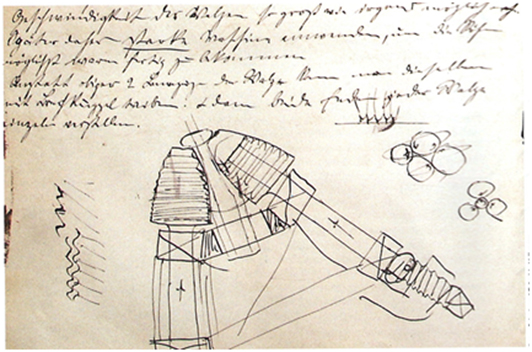 Geschwindigkeit der Walzen so groß wie irgend möglich
später daher starke Maschine anwenden, um die Rohre
möglichst warm fertig zu bekommen
Anstatt obiger 2 der Walze kann man dieselben
mit treiben. & dann beide jeder Walze
einzeln verstellen.